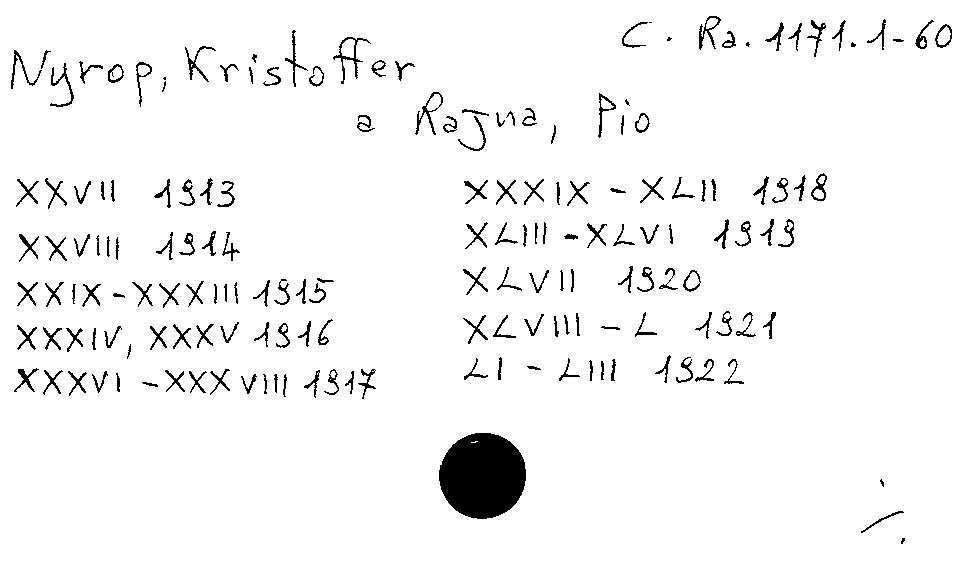 C. Ra. 1171. 1-60
Nyrop, Kristoffer
a Rajna, Pio
XXVII 1913
XXVIII 1914
XXIX - XXXIII 1915
XXXIV, XXXV 1916
XXXVI - XXXVIII 1917
XXXIX - XLII 1918
XLIII - XLVI 1919
XLVII 1920
XLVIII - L 1921
LI - LIII 1922
./.